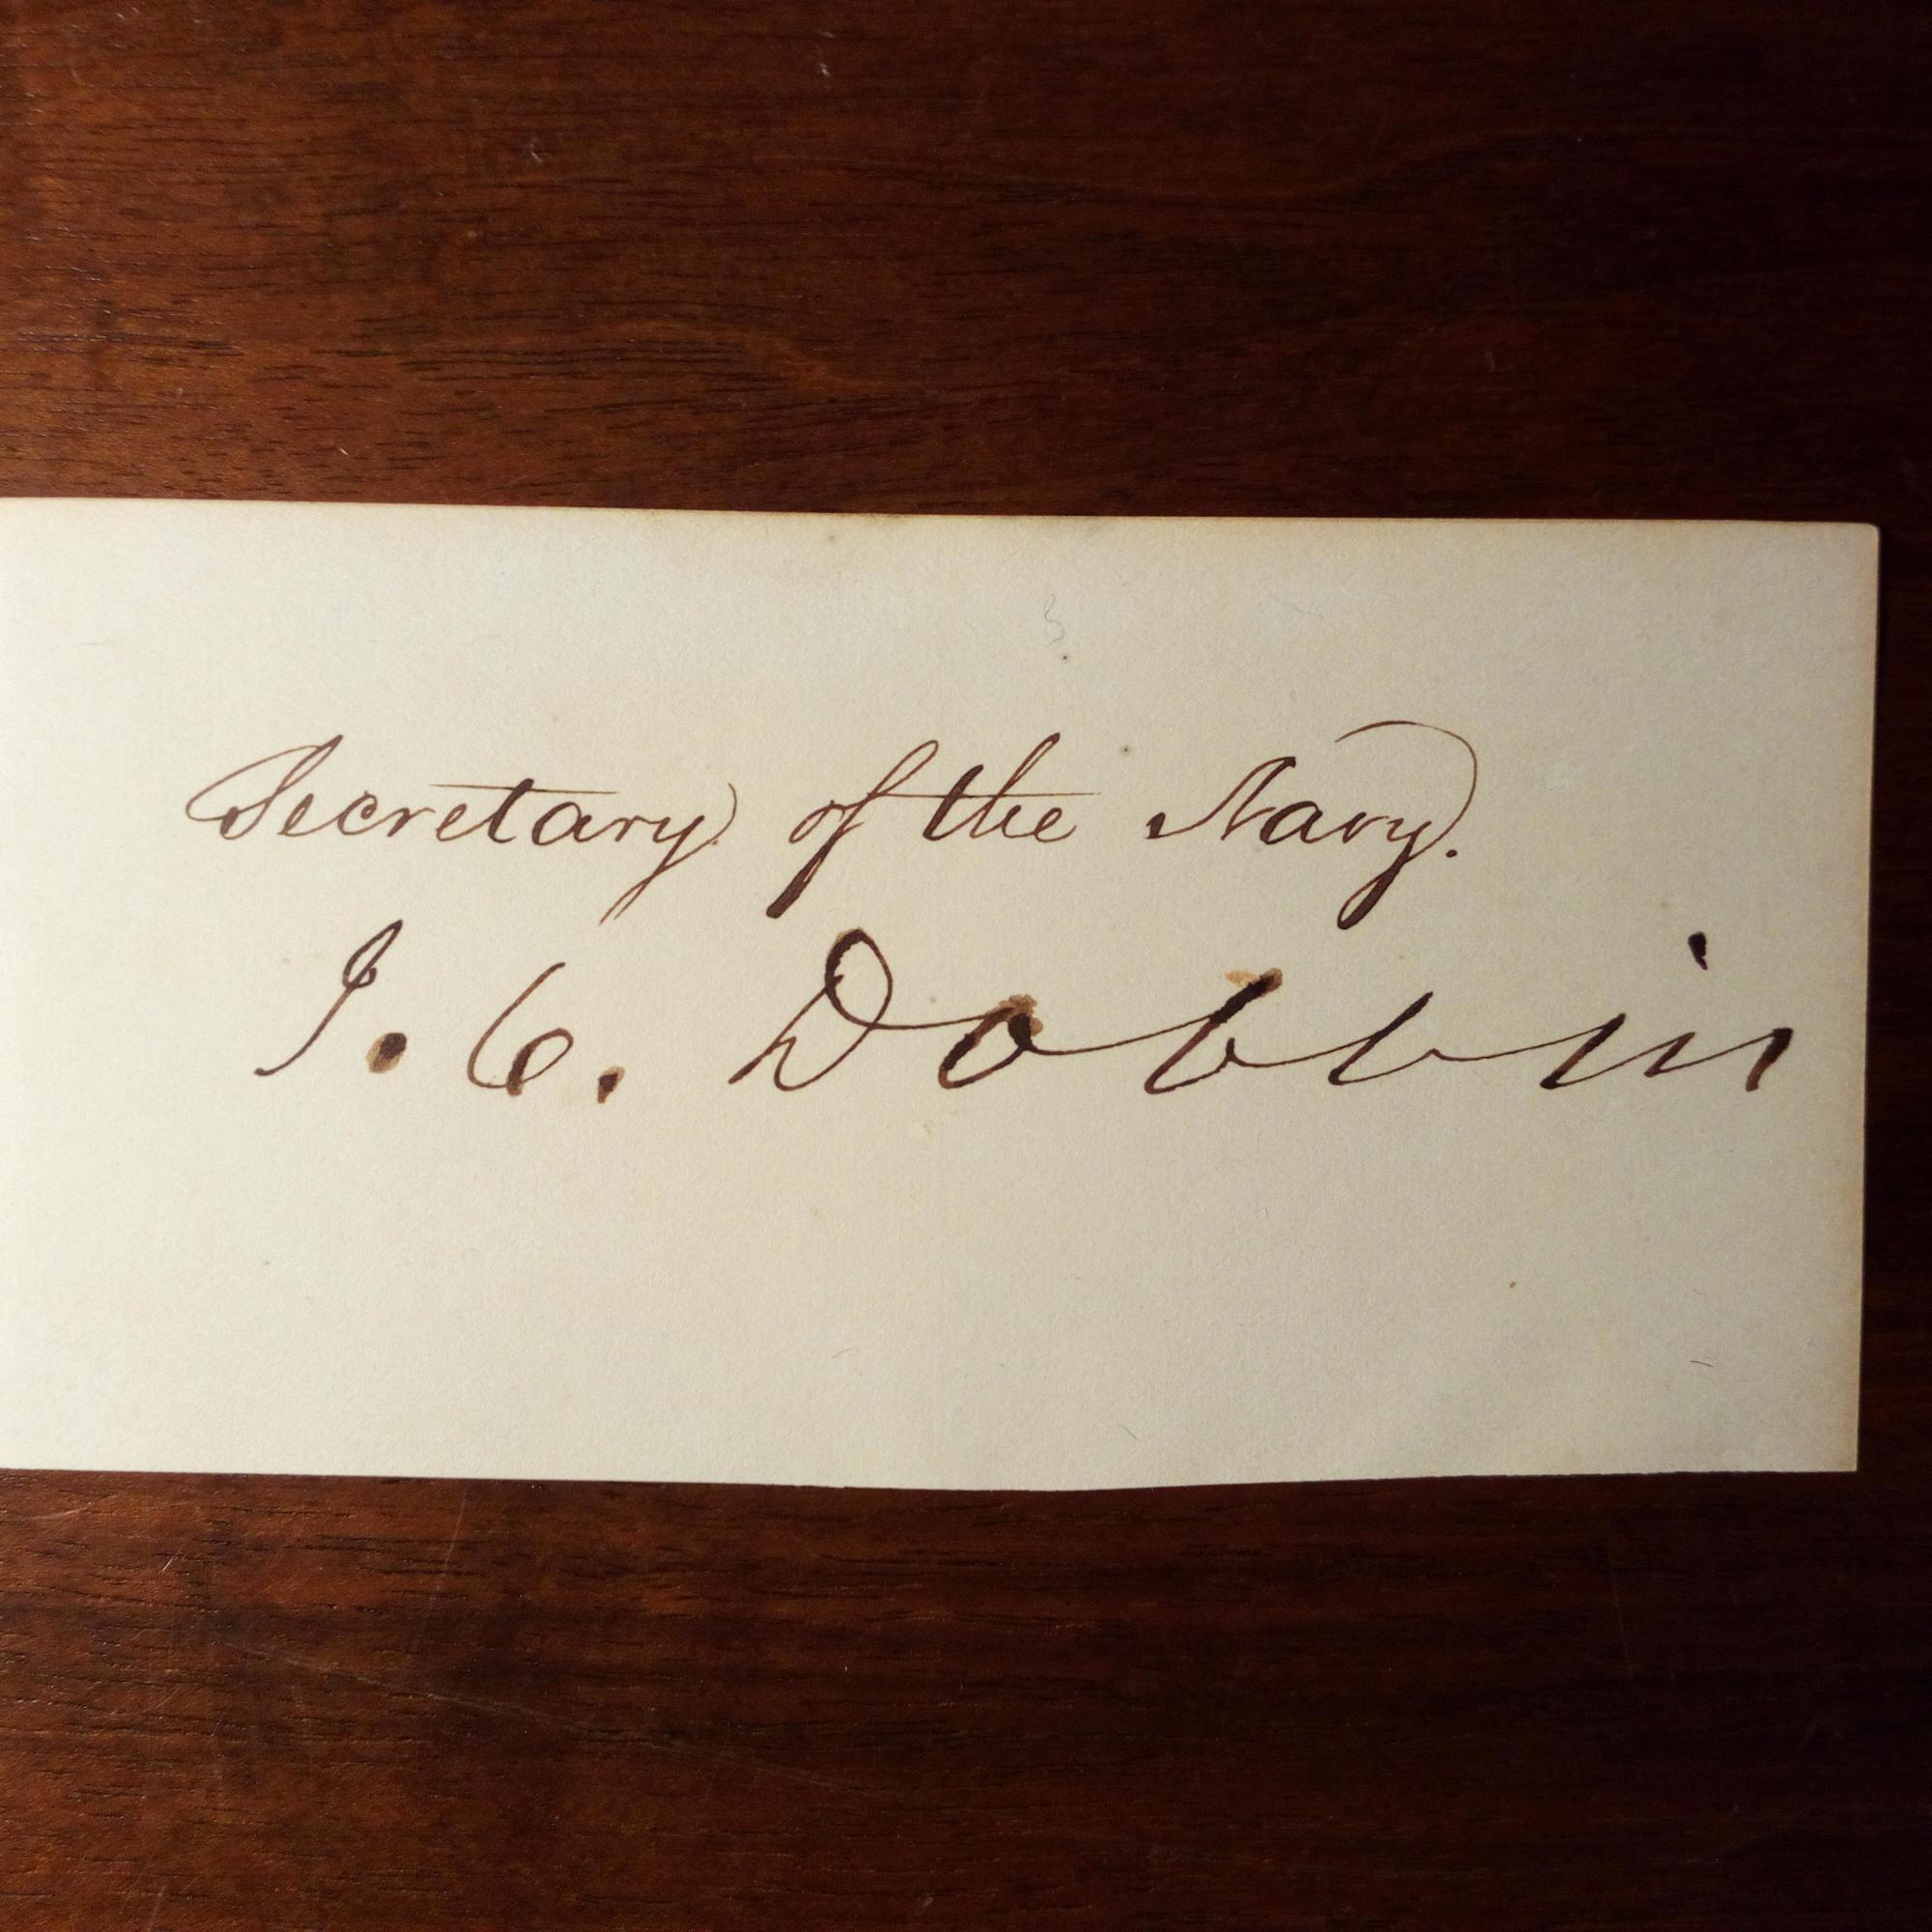 Secretary of the Navy.
J. C. Dobbin